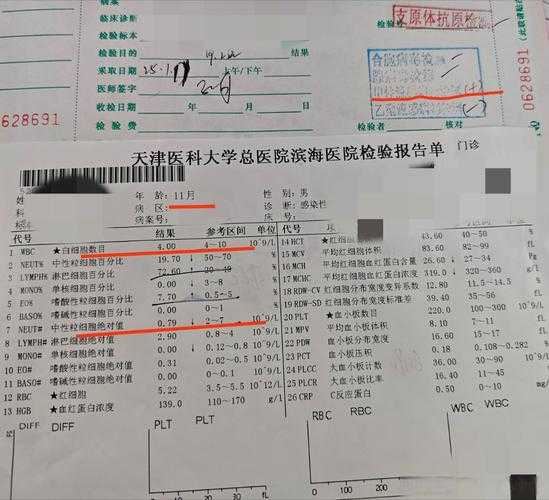 临床诊断
检验标本
检验目的 结果
采取日期 25.1. 上午/下午
医师签字
收检日期 年 月 日
检验费
检验者 核对
检验者
支原体抗原检
合胞病毒
(+)
乙 (-)
0628691
628691
天津医科大学总医院滨海医院检验报告单 门诊
年龄: 11月 性别: 男
病区: 诊断: 感染性
科
标本 病案号: 床号
代号 结果 参考区间 单位
1 WBC ★白细胞数目 4.00 4~10 10^9/L
2 NEUT% 中性粒细胞百分比 19.70 ↓ 50~70 %
3 LYMPH% 淋巴细胞百分比 72.60 20~40 %
4 MONO% 单核细胞百分比 0.00 ↓ 3~8 %
5 EO% 嗜酸性粒细胞百分比 7.70 0.5~5 %
6 BASO% 嗜碱性粒细胞百分比 0.00 0~1 %
7 NEUT# 中性粒细胞绝对值 0.79 ↓ 2~7 10^9/L
8 LYMPH# 淋巴细胞绝对值 2.90 0.8~4 10^9/L
9 MONO# 单核细胞绝对值 0.00 ↓ 0.12~0.8 10^9/L
10 EO# 嗜酸性粒细胞绝对值 0.31 0.02~0.5 10^9/L
11 BASO# 嗜碱性粒细胞绝对值 0.00 0~0.1 10^9/L
12 RBC ★红细胞 5.22 3.5~5.5 10^12/L
13 HGB ★血红蛋白浓度 139.0 110~170 g/L
参考区间 单位
14 HCT ★红细胞 43.60 40~50 %
15 MCV 平均红细胞体积 83.60 82~99 fL
16 MCH 平均红细胞血红蛋白含量 26.60 ↓ 27~34 Pg
17 MCHC 平均红细胞血红蛋白浓度 319.0 ↓ 320~360 g/L
18 RDW-CV 红细胞分布宽度变异系数 12.80 11.5~14.5 %
19 RDW-SD 红细胞分布宽度标准差 39.40 35~56 fL
20 PLT ★血小板数目
21 MPV 平均血小板体积 8.10 7~11 fL
22 PDW 血小板分布宽度 16.60 15~17
23 PCT 血小板压积 0.18 0.108~0.282 %
24 PLCC 大血小板计数 36.00 30~90 10^9/L
25 PLCR 大血小板比率 16.40 11~45 %
26 CRP C反应蛋白 0.50 0~10 mg/L
DIFF DIFF PLT PLT RBC RBC WBC WBC
10 20 30 fL
100 200 fL